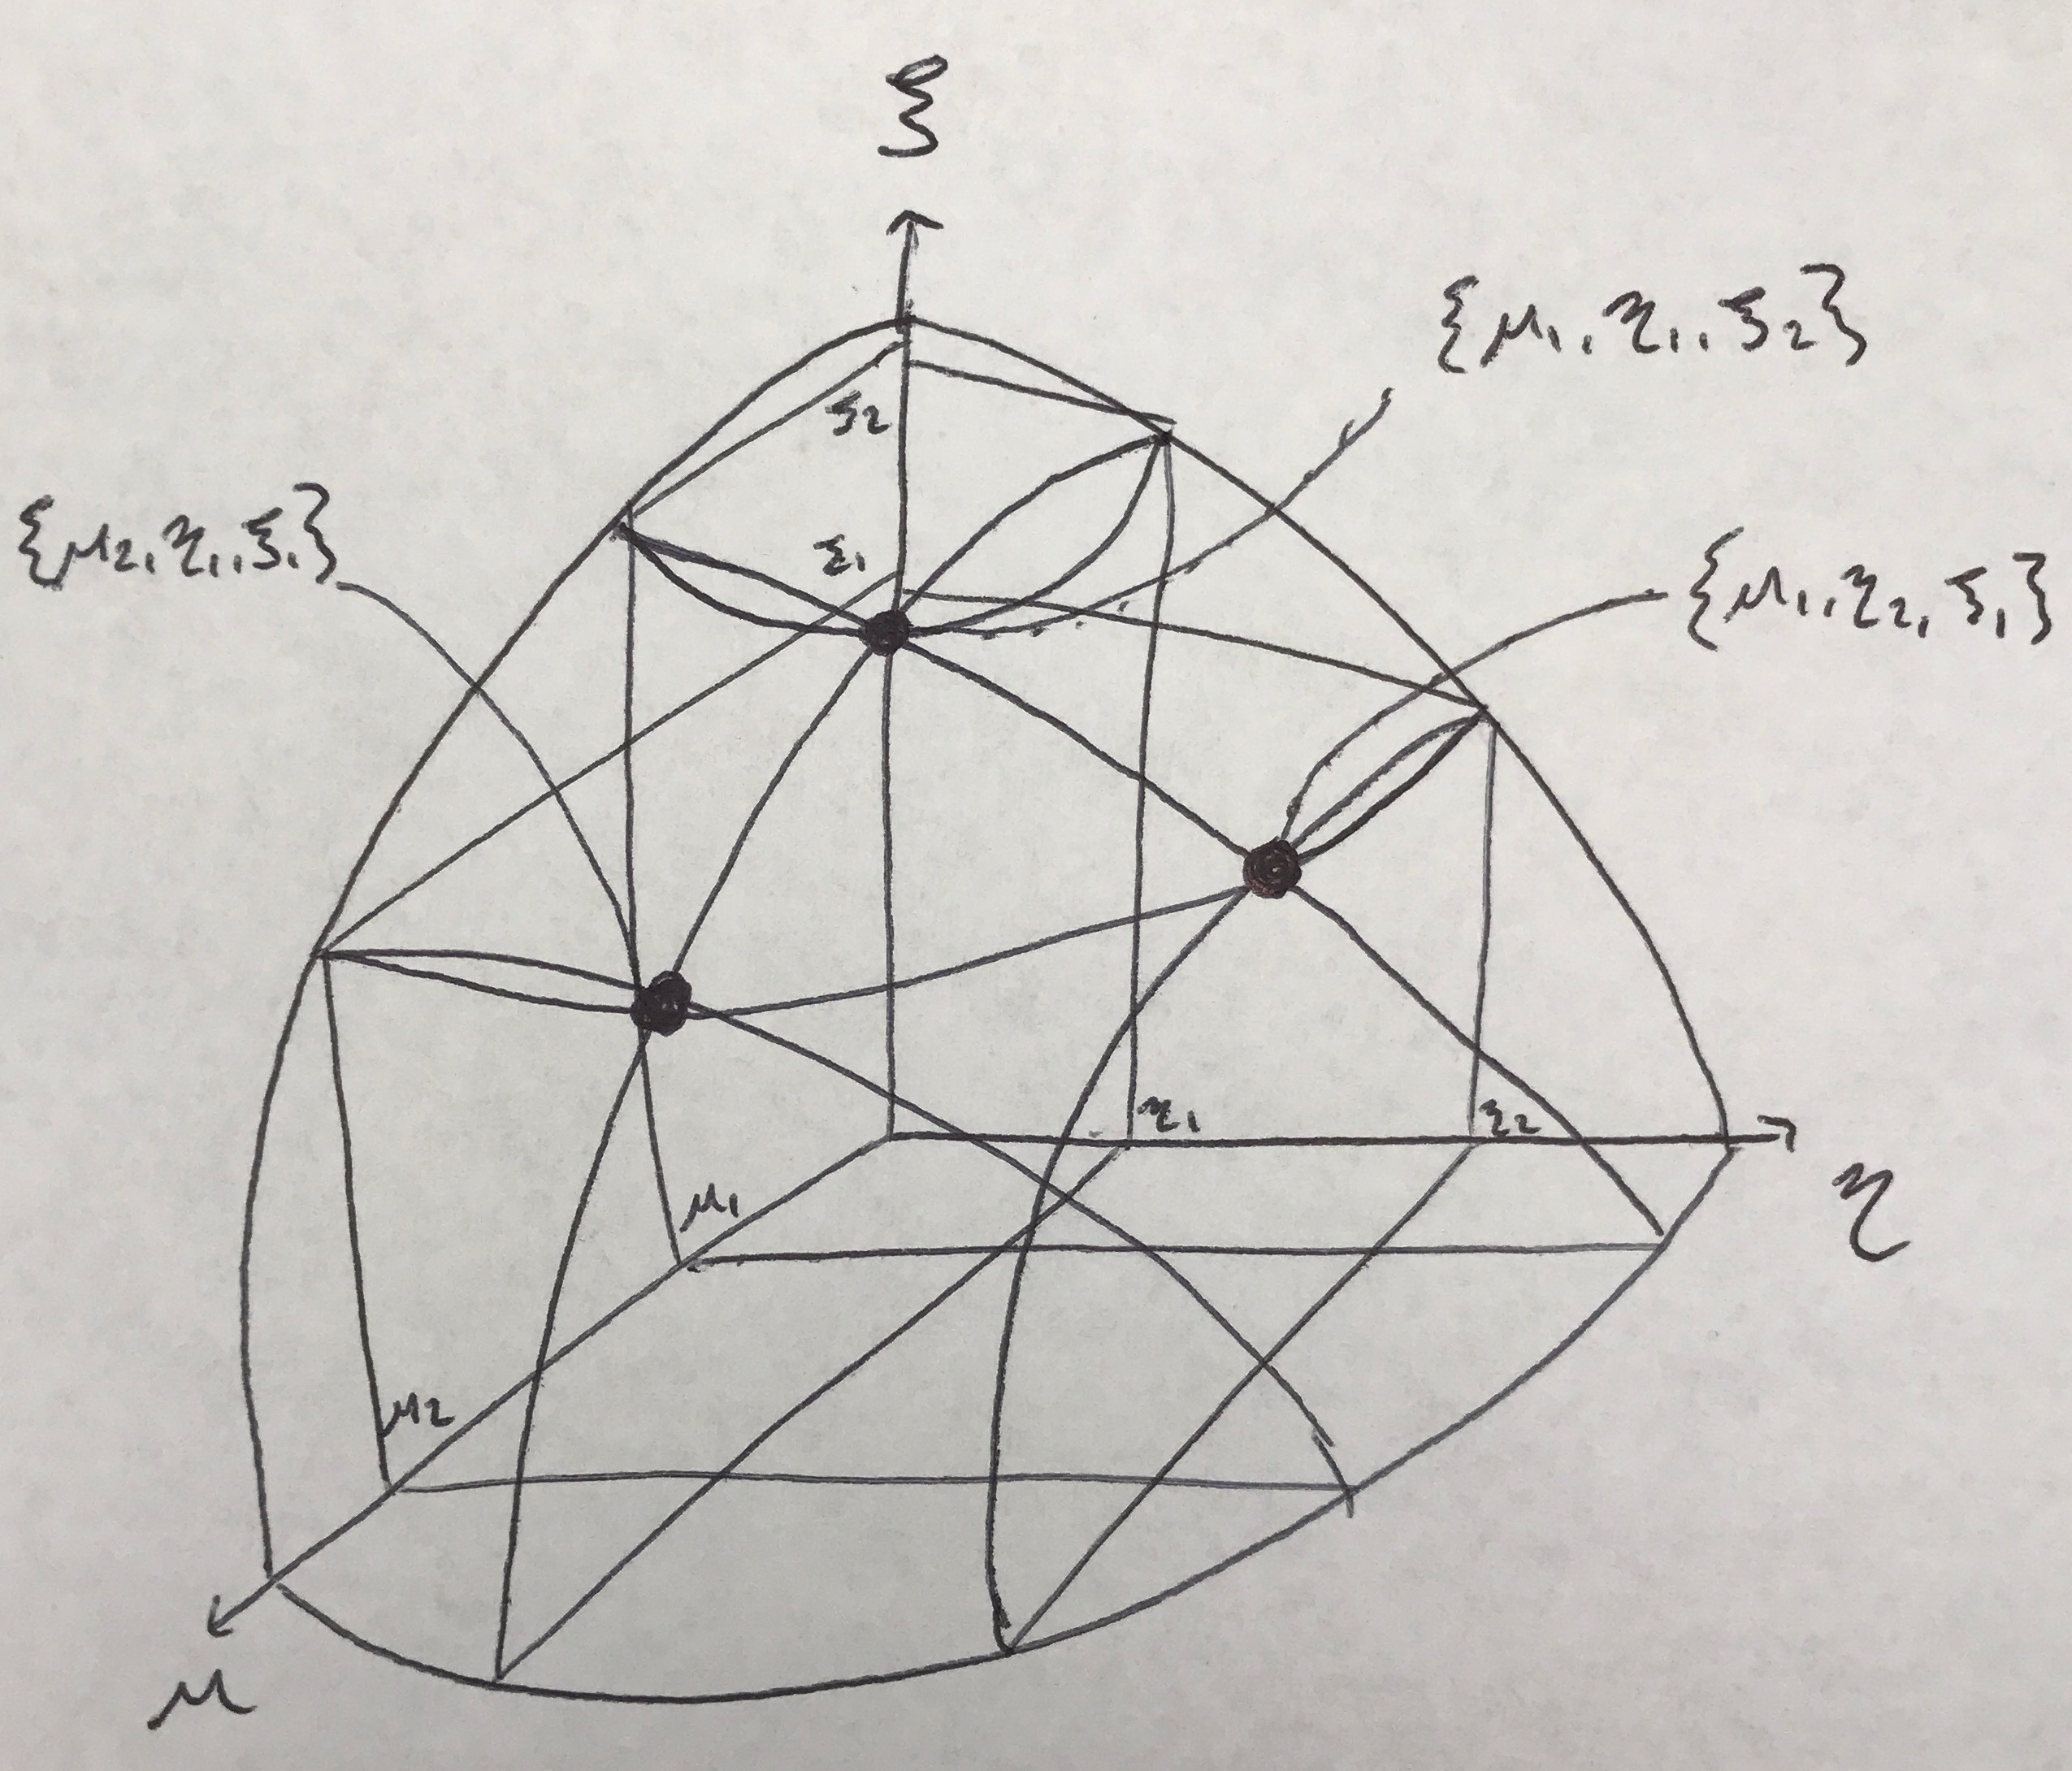 ξ
{μ₁, η₁, ξ₂}
ξ₂
{μ₂, η₁, ξ₁}
ξ₁
{μ₁, η₂, ξ₁}
η₁
η₂
η
μ₁
μ₂
μ